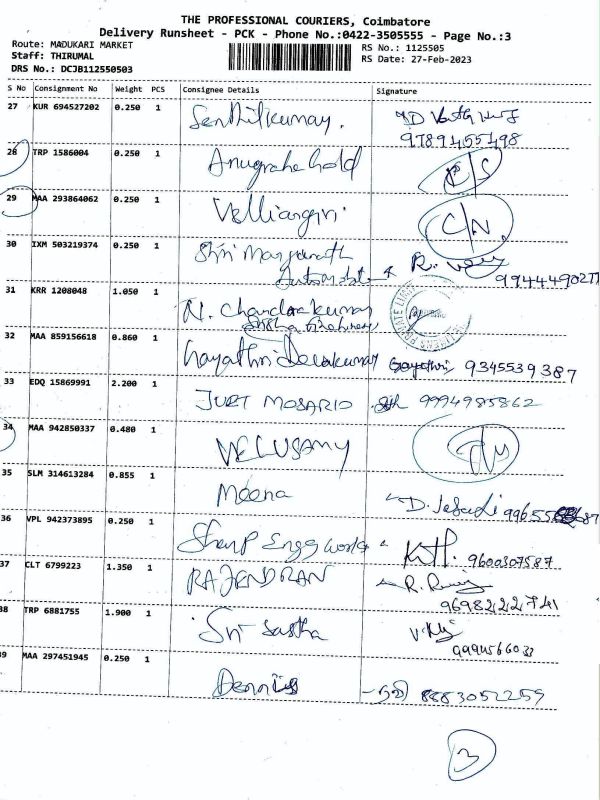 THE PROFESSIONAL COURIERS, Coimbatore
Delivery Runsheet - PCK - Phone No.:0422-3505555 - Page No.:3
Route: MADUKARI MARKET
RS No.: 1125505
Staff: THIRUMAL
RS Date: 27-Feb-2023
DRS No.: DCJB112550503
S No Consignment No Weight PCS Consignee Details Signature
27 KUR 694527202 0.250 1 Senthilkumar.
9789455498
28 TRP 1586004 0.250 1 Anugraha Gold
29 MAA 293864062 0.250 1 Velliangiri C/N
30 IXM 503219374 0.250 1 Shri Manjunath
Automobile R.
31 KRR 1208048 1.050 1 N. Chandrakumar
32 MAA 859156618 0.860 1 Gayathri Devakumar Gayathri 9345539387
33 EDQ 15869991 2.200 1 JUET MOSARIO 9994985862
34 MAA 942850337 0.480 1 VELUSAMY
35 SLM 314613284 0.855 1 Meena D.
36 VPL 942373895 0.250 1 Sharp Engg Works 9600307587
37 CLT 6799223 1.350 1 RAJENDRAN R.
9698222741
38 TRP 6881755 1.900 1 Sri Sastha
39 MAA 297451945 0.250 1 Dennis 8883052259
3